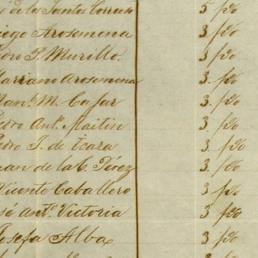 de los Santos Correoso 5 p%
Diego Arosemena 3 p%
Pedro J. Murillo 3 p%
Mariano Arosemena 3 p%
Man.l M. Cajar 3 p%
Pedro Ant.o Maitin 3 p%
Pedro J. de Icara 3 p%
Juan de la C. Pérez 3 p%
Vicente Caballero 3 p%
José Ant.o Victoria 3 p%
Josefa Alba 3 p%
3 p%